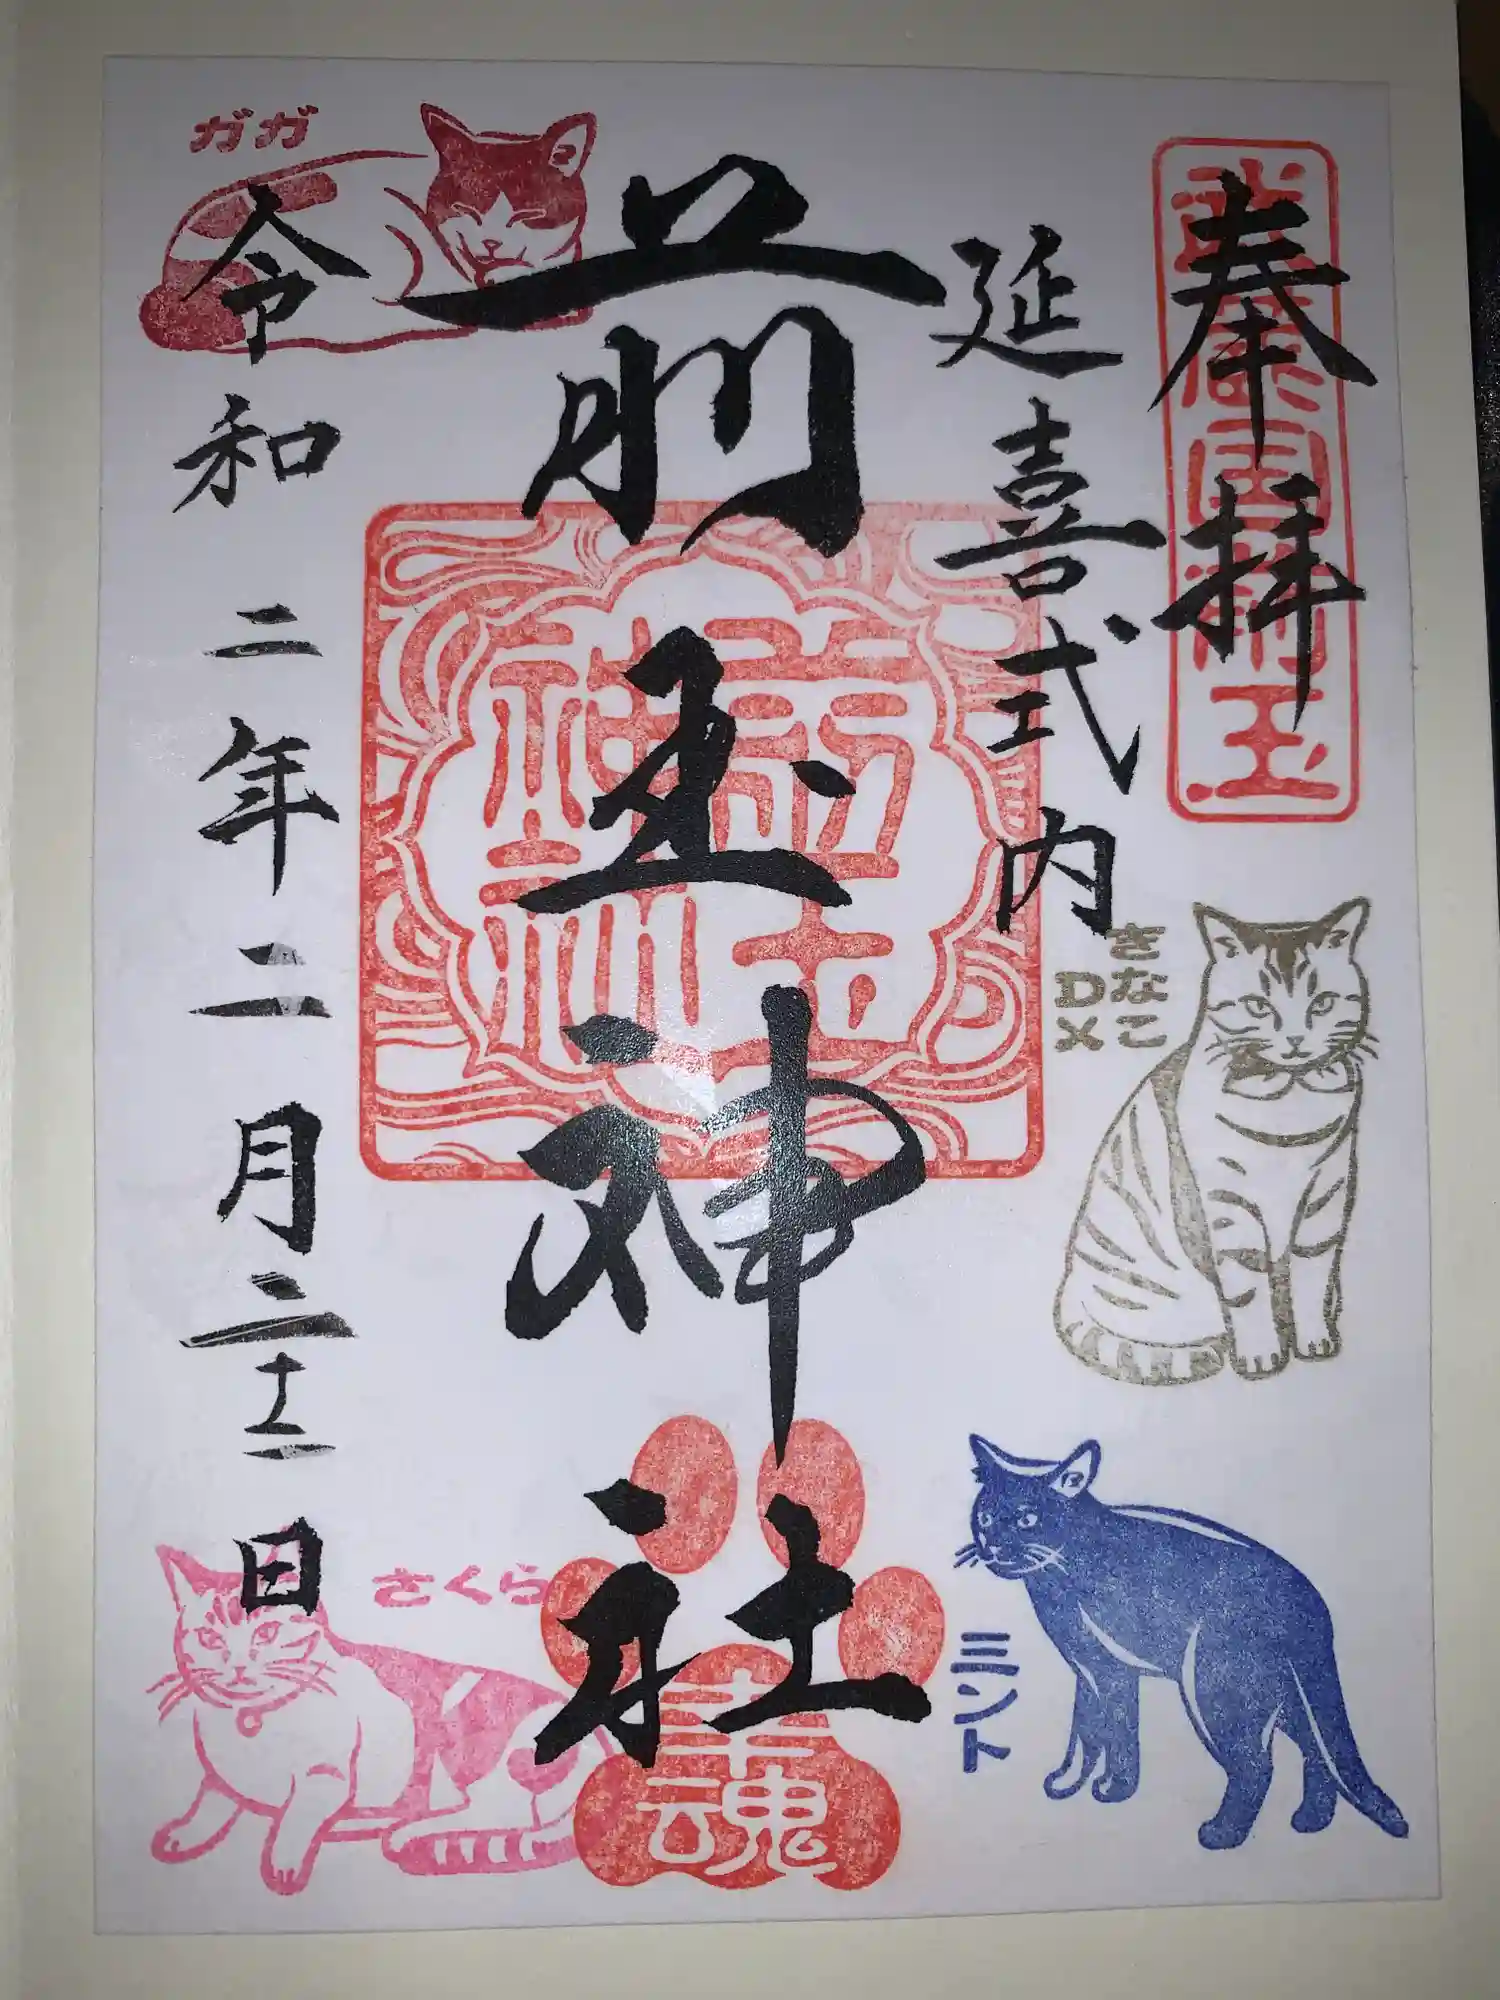 奉拝
武蔵国前玉
延喜式内
前玉神社
前玉
神社
令和二年二月二十二日
ガガ
きなこ
DX
ミント
さくら
幸魂